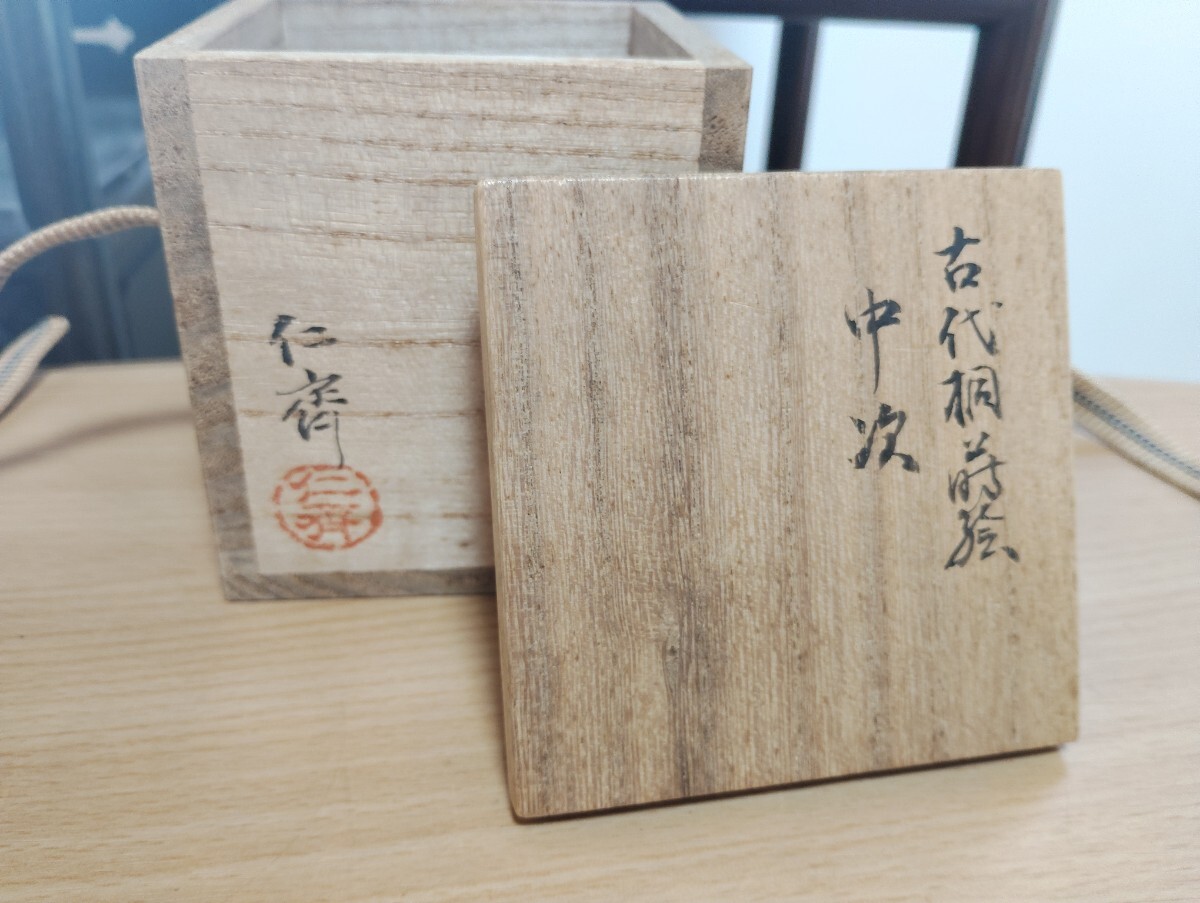 古代桐蒔絵
中次
仁斎
仁斎